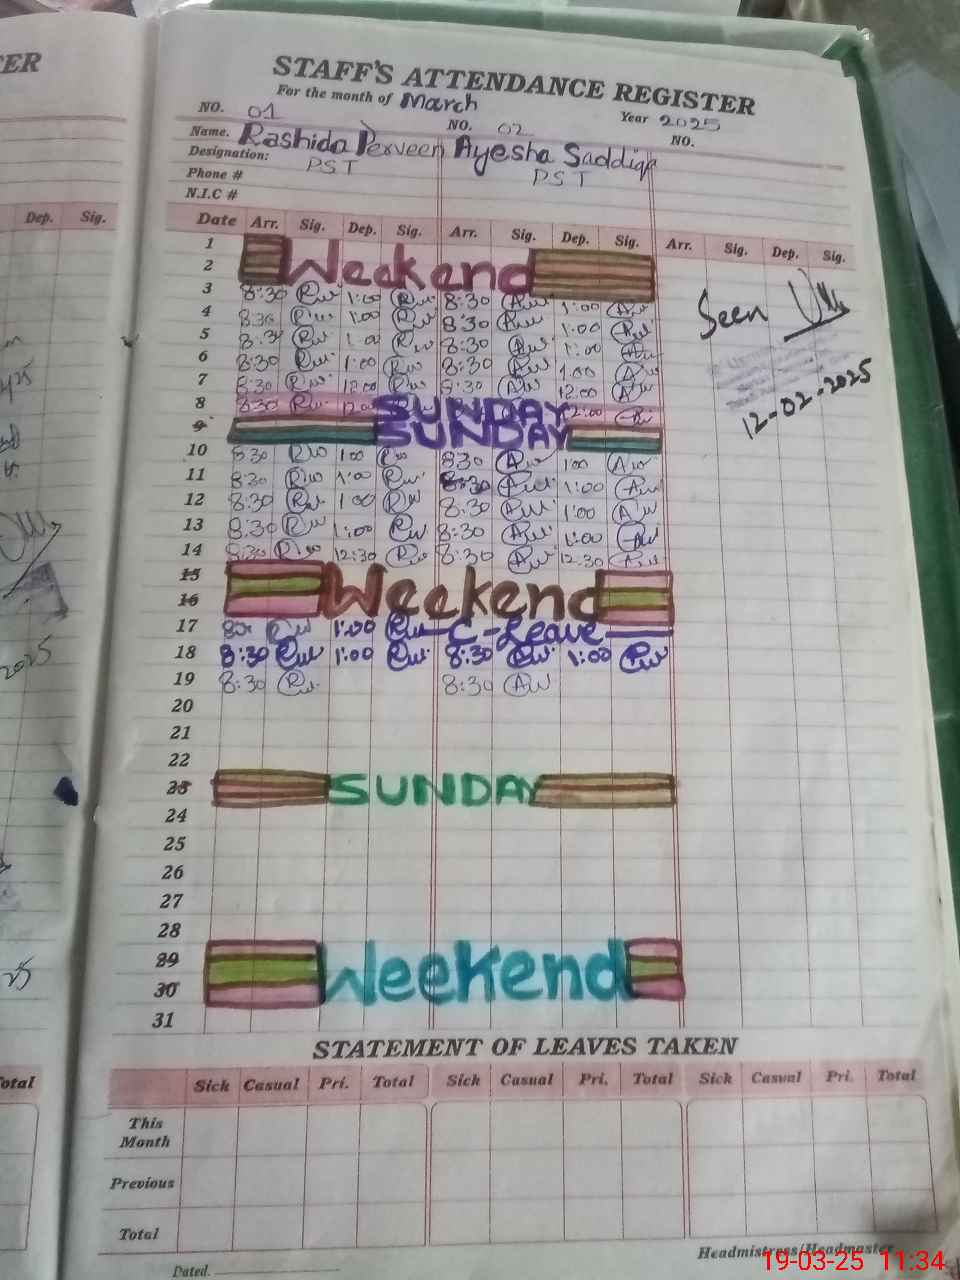 ER
STAFF'S ATTENDANCE REGISTER
For the month of March Year 2025
NO. 01 NO. 02 NO.
Name. Rashida Perveen Ayesha Saddiqa
Designation: PST PST
Phone #
N.I.C #
Dep. Sig.
Date Arr. Sig. Dep. Sig. Arr. Sig. Dep. Sig. Arr. Sig. Dep. Sig.
1
2 Weekend
3 8:30 Rw 1:00 Rw 8:30 Aw 1:00 Aw
4 8:30 Rw 1:00 Rw 8:30 Aw 1:00 Aw
Seen
5 8:30 Rw 1:00 Rw 8:30 Aw 1:00 Aw
6 8:30 Rw 1:00 Rw 8:30 Aw 1:00 Aw
7 8:30 Rw 12:00 Rw 8:30 Aw 12:00 Aw
12-02-2025
8 8:30 Rw 12:00 SUNDAY 12:00 Aw
9 SUNDAY
10 8:30 Rw 1:00 Rw 8:30 Aw 1:00 Aw
11 8:30 Rw 1:00 Rw 8:30 Aw 1:00 Aw
12 8:30 Rw 1:00 Rw 8:30 Aw 1:00 Aw
13 8:30 Rw 1:00 Rw 8:30 Aw 1:00 Aw
14 8:30 Rw 12:30 Rw 8:30 Aw 12:30 Aw
15
16 Weekend
17 8:30 Rw 1:00 Rw C-Leave
18 8:30 Rw 1:00 Rw 8:30 Aw 1:00 Aw
2025
19 8:30 Rw 8:30 Aw
20
21
22
23 SUNDAY
24
25
26
27
28
29
30 Weekend
31
STATEMENT OF LEAVES TAKEN
otal
Sick Casual Pri. Total Sick Casual Pri. Total Sick Casual Pri. Total
This Month
Previous
Total
Headmistress/Headmaster
Dated.
19-03-25 11:34